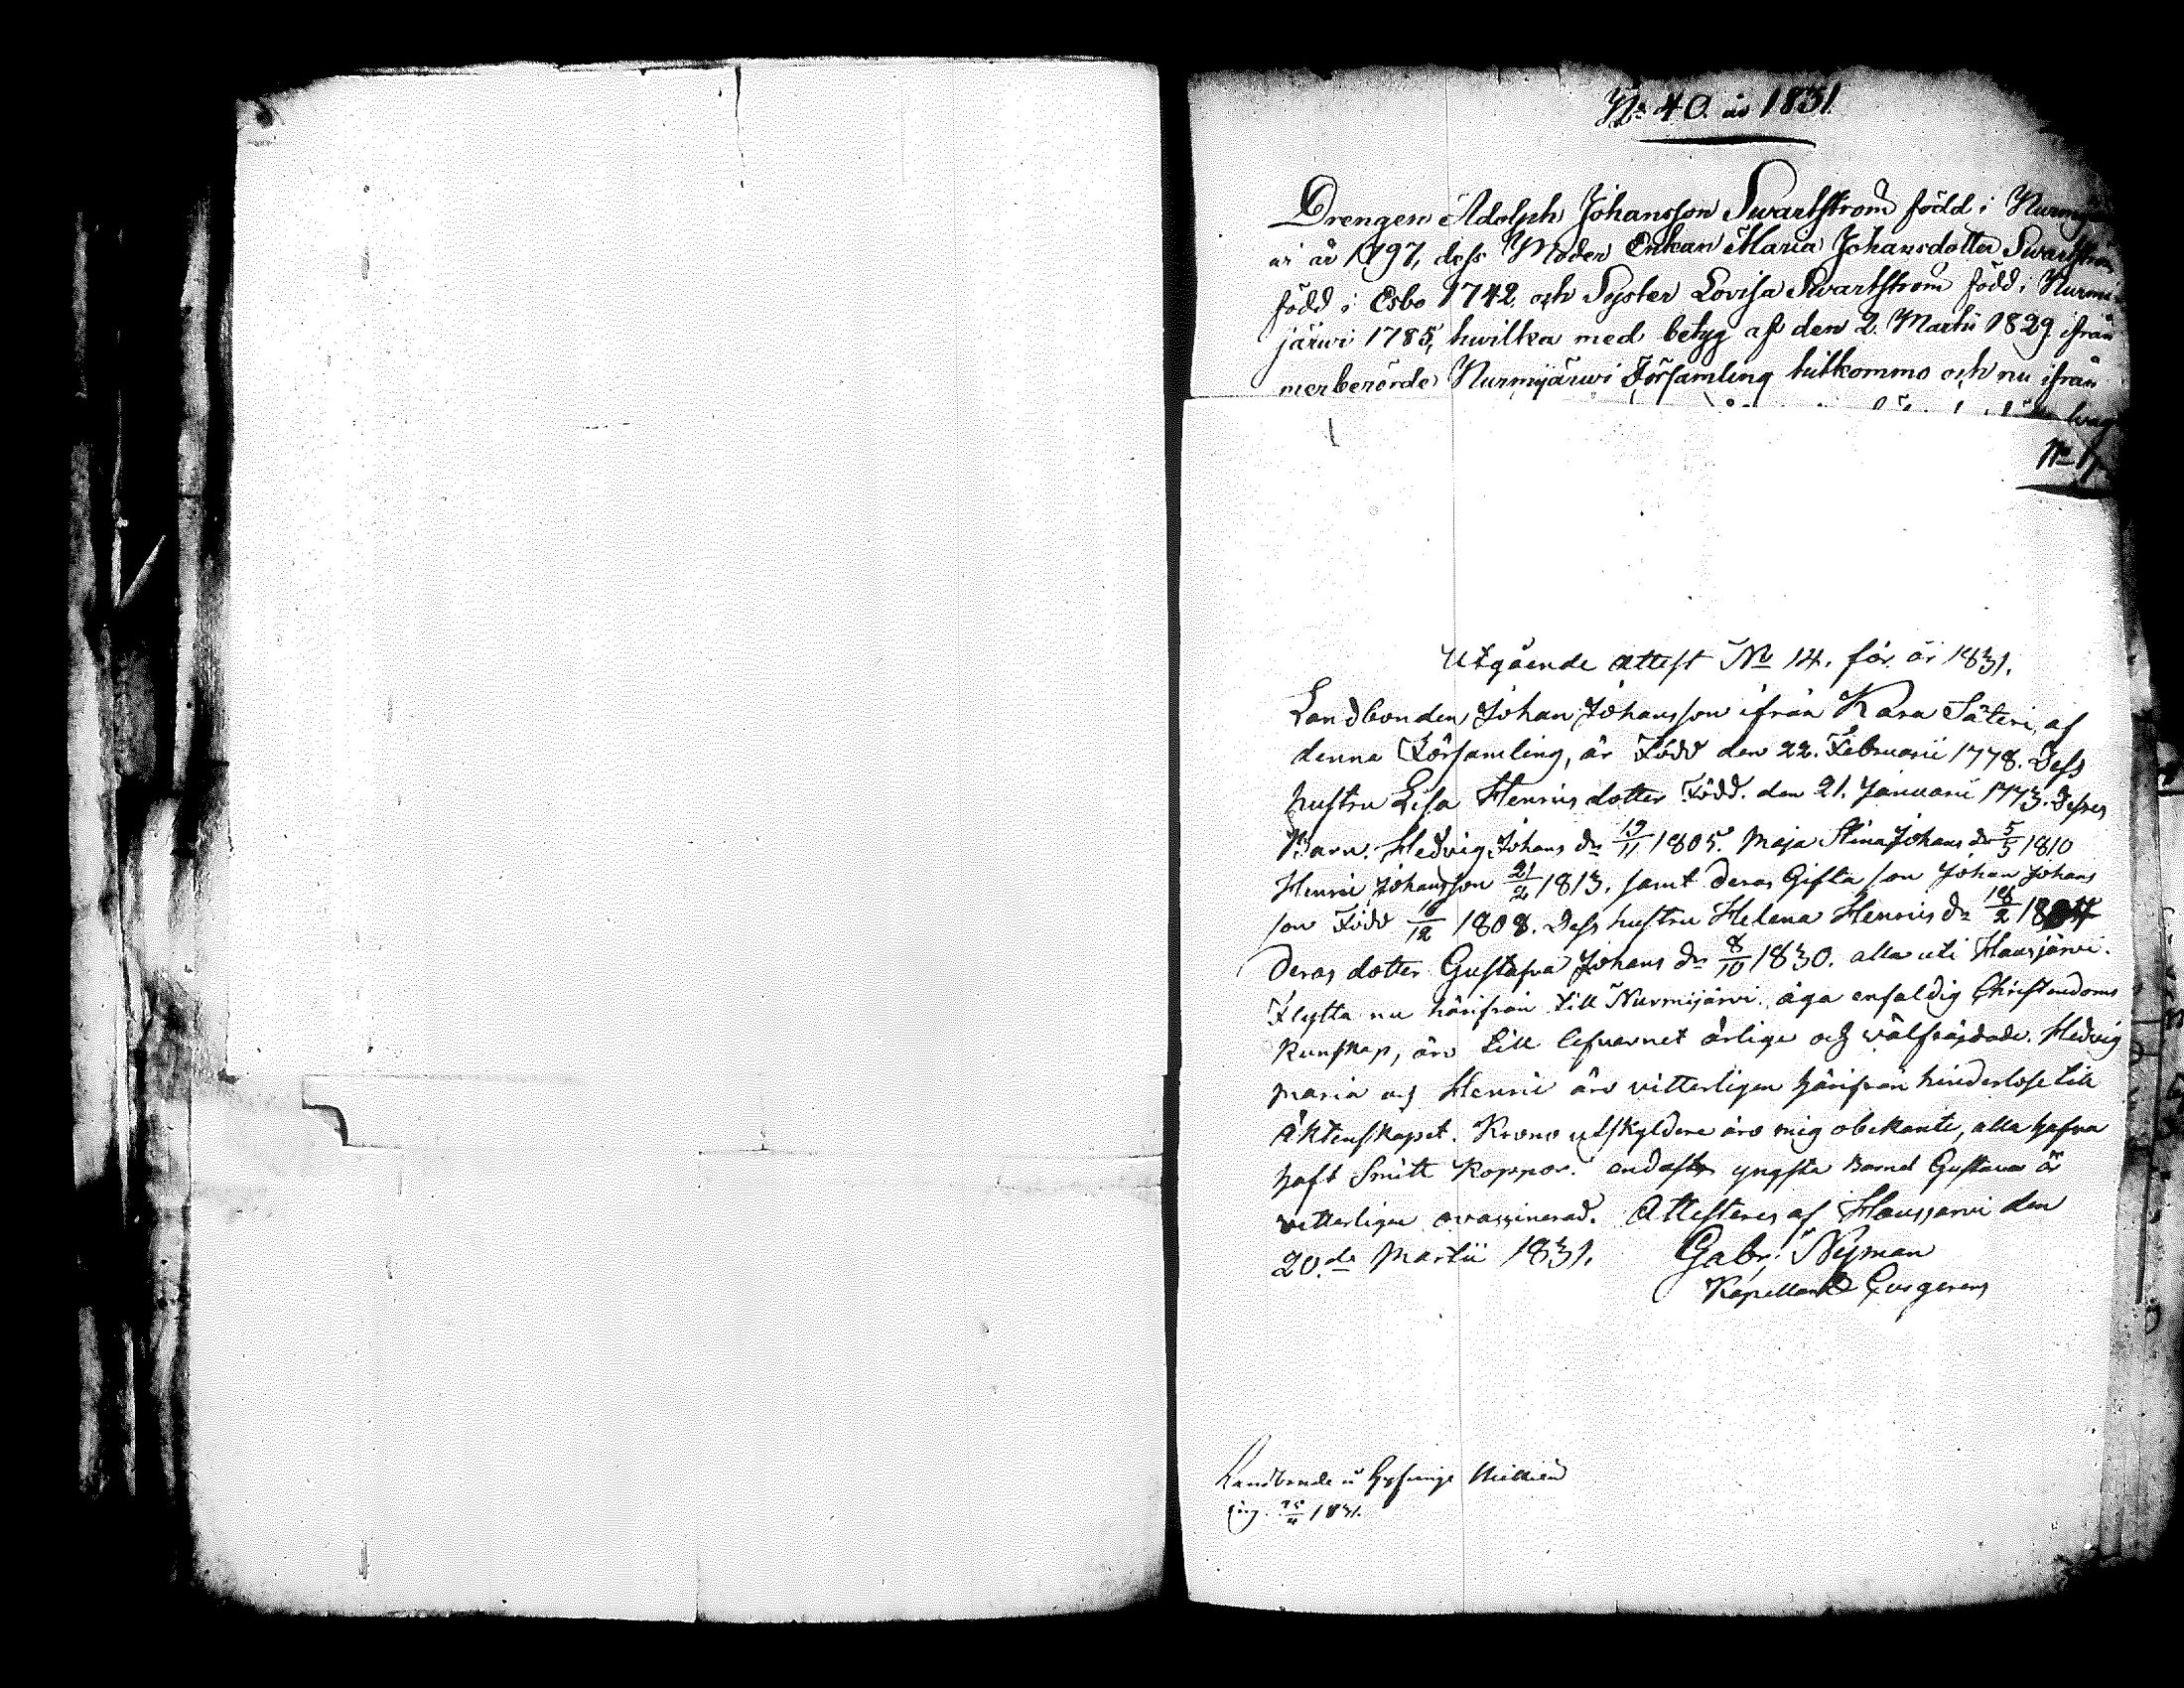 No 40. år 1831.
Drengen Adolph Johansson Swartström född i Nurmijär
vi år 1797, dess Moder Enkan Maria Johansdotter Swartström
född i Esbo 1742, och Syster Lovisa Swartström född i Nurmi
järwi 1785, hwilka med betyg af den 2 Martii 1829 ifrån
merberörde Nurmijärwi Församling hitkommo och nu ifrån
No 1
Utgående attest No 14. för år 1831.
Landbonden Johan Johansson ifrån Kara Säteri, af
denna Församling, är Född den 22. Februarii 1778. Dess
hustru Lisa Henricsdotter Född. den 21. Januarii 1773. Desses
Barn. Hedvig Johans dr 19/11 1805. Maja Stina Johans dr 5/5 1810
Henric Johansson 21/2 1813, samt deras Gifta son Johan Johans
son Född 16/12 1808. Dess hustru Helena Henrics dr 18/2
deras dotter Gustafva Johans dr 8/10 1830. alla uti Hausjärvi.
Flytta nu härifrån till Nurmijärvi. äga enfaldig Christendoms
Kunskap, äro till lefvernet ärlige och välfräjdade. Hedvig
Maria och Henric äro vitterligen härifrån hinderlöse till
Äktenskapet. Krono utskylderne äro mig obekante, alla hafva
haft Smitt Koppor. endast yngsta barnet Gustava är
vitterligen ovaccinerad. Attesteres af Hausjärvi den
20.de Martii 1831. Gabr. Nyman
Kapellan
Landbonde å
1831.